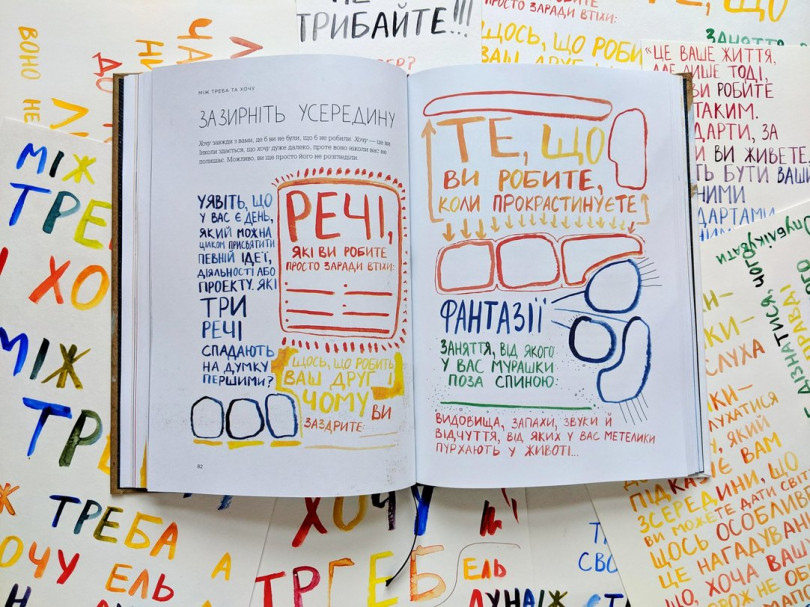 ТРИБАЙТЕ!!!
ПРОСТО ЗАРАДИ ВТІХИ:
ЩОСЬ, ЩО РОБИ
ВАШ ДРУГ
ЗАНЯТТЯ
ВОНО НЕ
"ЦЕ ВАШЕ ЖИТТЯ,
ЛИШЕ ТОДІ,
ВИ РОБИТЕ
ТАКИМ.
ДАРТИ, ЗА
И ВИ ЖИВЕТЕ.
ТЬ БУТИ ВАШИ
НИМИ
ДАРТАМИ
МІЖ
ТРЕБ
І ХО
МІЖ
ТРЕБ
МІЖ ТРЕБА ТА ХОЧУ
ЗАЗИРНІТЬ УСЕРЕДИНУ
Хочу завжди з вами, де б ви не були, що б не робили. Хочу — це ви.
Інколи здається, що хочу дуже далеко, проте воно ніколи вас не
полишає. Можливо, ви ще просто його не розгледіли.
УЯВІТЬ, ЩО
У ВАС Є ДЕНЬ,
ЯКИЙ МОЖНА
ЦІЛКОМ ПРИСВЯТИТИ
ПЕВНІЙ ІДЕЇ,
ДІЯЛЬНОСТІ АБО
ПРОЕКТУ. ЯКІ
ТРИ
РЕЧІ
СПАДАЮТЬ
НА ДУМКУ
ПЕРШИМИ?
РЕЧІ,
ЯКІ ВИ РОБИТЕ
ПРОСТО ЗАРАДИ ВТІХИ:
ЩОСЬ, ЩО РОБИТЬ
ВАШ ДРУГ І
ЧОМУ ВИ
ЗАЗДРИТЕ:
82
ТЕ, ЩО
ВИ РОБИТЕ,
КОЛИ ПРОКРАСТИНУЄТЕ
ФАНТАЗІЇ
ЗАНЯТТЯ, ВІД ЯКОГО
У ВАС МУРАШКИ
ПОЗА СПИНОЮ:
ВИДОВИЩА, ЗАПАХИ, ЗВУКИ Й
ВІДЧУТТЯ, ВІД ЯКИХ У ВАС МЕТЕЛИКИ
ПУРХАЮТЬ У ЖИВОТІ...
ОПУБЛІКУВАТИ
ДІЗНАТИСЯ, ЧОГО
СЛУХА
ЛУХАТИСЯ
ТУ, ЯКИЙ
ПІДКАЗУЄ ВАМ
ЗСЕРЕДИНИ, ЩО
ВИ МОЖЕТЕ ДАТИ СВІ
ЩОСЬ ОСОБЛИВ
ЦЕ НАГАДУВАН
ЩО, ХОЧА ВАШ
ТРЕБА А
ХОЧУ ЕЛЬ
ХОЧУ
ТРЕБ
ЕЛЬ